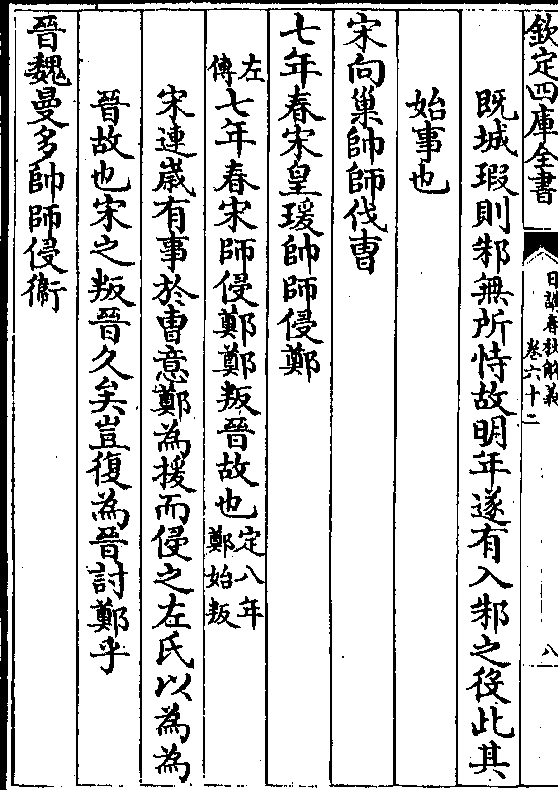 欽定四庫全書
日講春秋解義
卷六十二
八
既城瑕則邾無所恃故明年遂有入邾之役此其
始事也
宋向巢帥師伐曹
七年春宋皇瑗帥師侵鄭
左傳七年春宋師侵鄭鄭叛晉故也定八年鄭始叛
宋連歲有事於曹意鄭為援而侵之左氏以為為
晉故也宋之叛晉久矣豈復為晉討鄭乎
晉魏曼多帥師侵衞